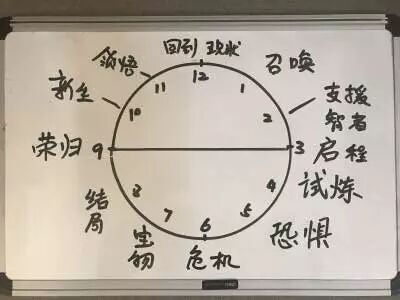 回到现状
召唤
支援
智者
启程
试炼
恐惧
危机
宝物
结局
荣归
新生
领悟
12
1
2
3
4
5
6
7
8
9
10
11